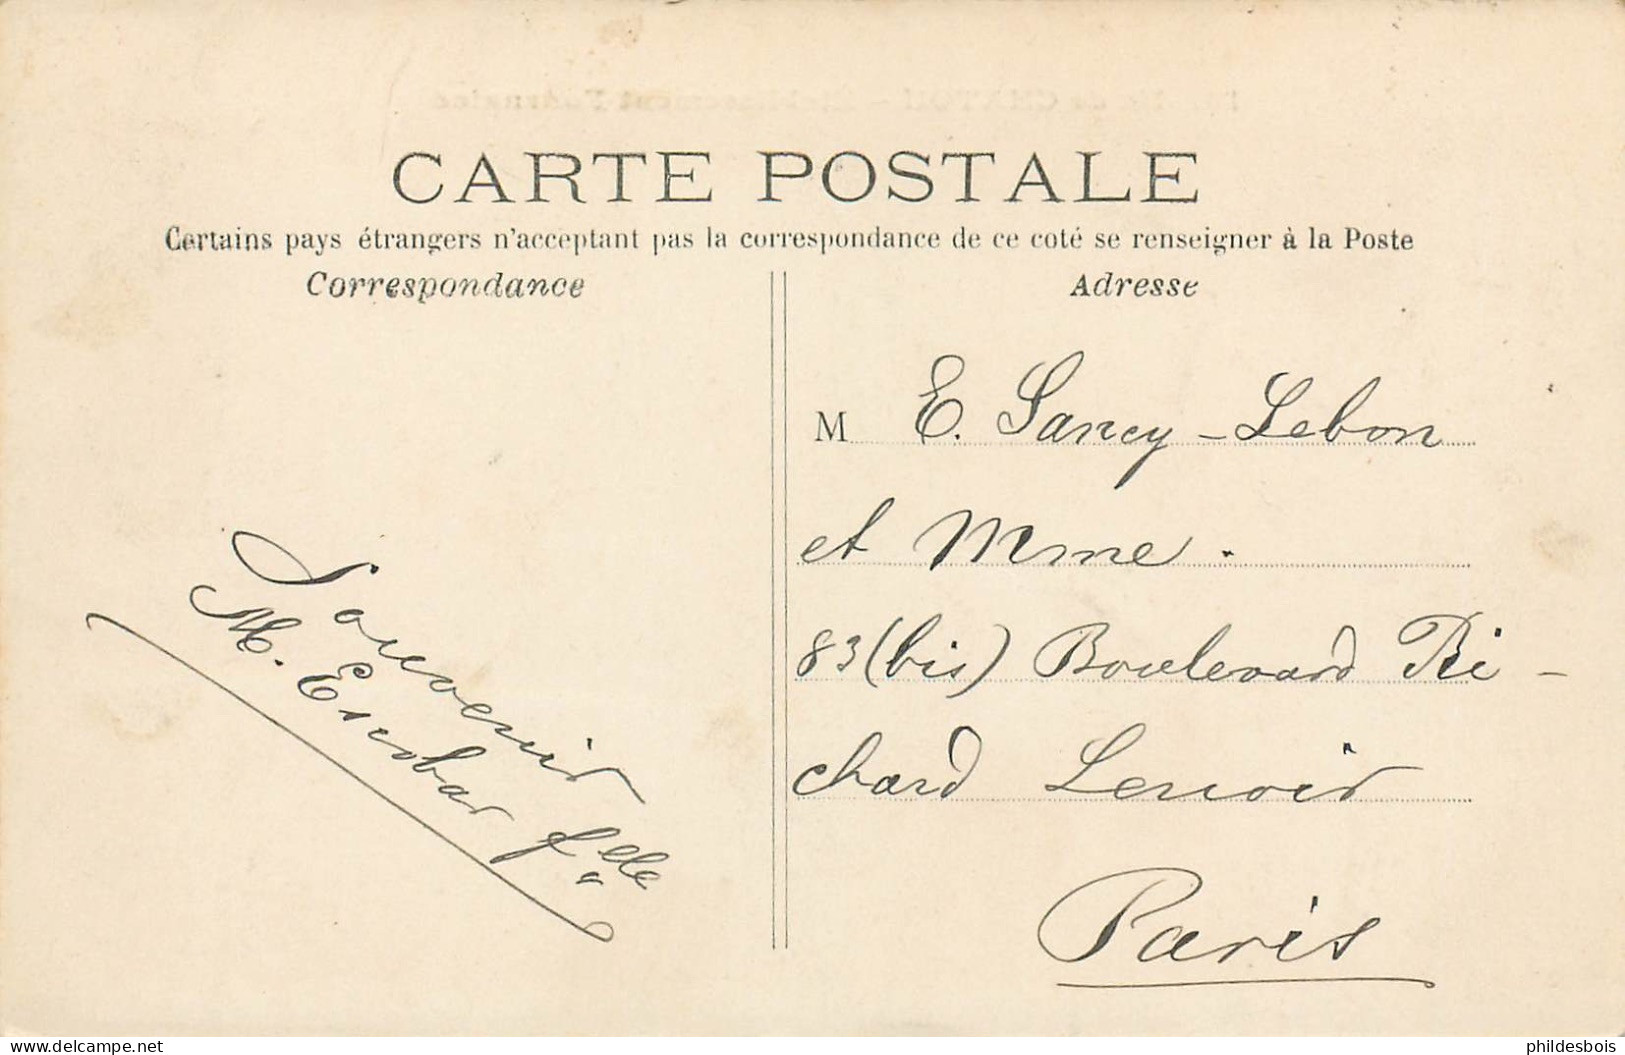 CARTE POSTALE
Certains pays étrangers n'acceptant pas la correspondance de ce coté se renseigner à la Poste
Correspondance
Souvenir
M. Escobar f.lle
Adresse
M E. Sancy-Lebon
et Mme.
83 (bis) Boulevard Ri-
chard Lenoir
Paris
https://www.delcampe.net
phildesbois